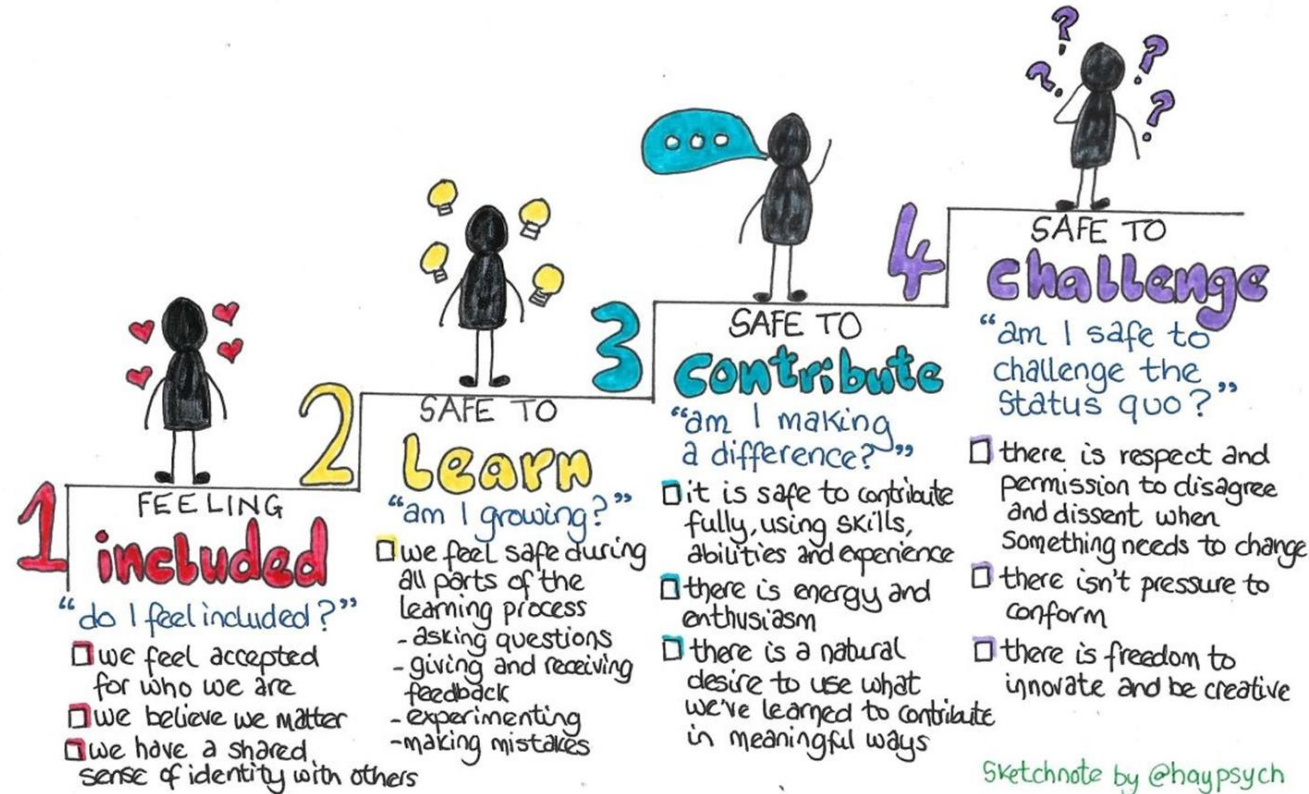 1
FEELING
included
“do I feel included?”
we feel accepted
for who we are
we believe we matter
we have a shared
sense of identity with others
2
SAFE TO
Learn
“am I growing?”
we feel safe during
all parts of the
learning process
- asking questions
- giving and receiving
feedback
- experimenting
- making mistakes
3
SAFE TO
contribute
“am I making
a difference?”
it is safe to contribute
fully, using skills,
abilities and experience
there is energy and
enthusiasm
there is a natural
desire to use what
we've learned to contribute
in meaningful ways
4
SAFE TO
challenge
“am I safe to
challenge the
status quo?”
there is respect and
permission to disagree
and dissent when
something needs to change
there isn't pressure to
conform
there is freedom to
innovate and be creative
Sketchnote by @haypsych
? ? ? ?